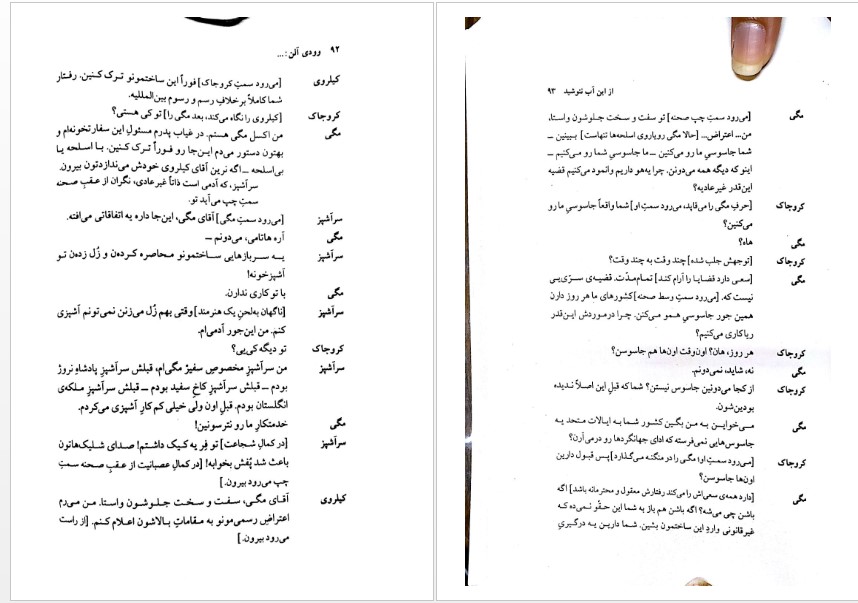 ۹۲ وودی آلن: ...
کیلروی [می‌رود سمتِ کروجاک] فوراً این ساختمونو ترک کنین. رفتار
شما کاملاً برخلافِ رسم و رسوم بین‌المللیه.
کروجاک [کیلروی را نگاه می‌کند، بعد مگی را] تو کی هستی؟
مگی من اکسل مگی هستم. در غیاب پدرم مسئولِ این سفارتخونه‌ام و
بهتون دستور می‌دم این‌جا رو فوراً ترک کنین. با اسلحه یا
بی‌اسلحه ــ اگه نرین آقای کیلروی خودش می‌ندازدتون بیرون.
سرآشپز، که آدمی است ذاتاً غیرعادی، نگران از عقبِ صحنه
سمتِ چپ می‌آید تو.
سرآشپز [می‌رود سمتِ مگی] آقای مگی، این‌جا داره یه اتفاقاتی می‌افته.
مگی آره هاتامی، می‌دونم ــ
سرآشپز یه سربازهایی ساختمونو محاصره کردن و زُل زدن تو
آشپزخونه!
مگی با تو کاری ندارن.
سرآشپز [ناگهان به‌لحنِ یک هنرمند] وقتی بهم زُل می‌زنن نمی‌تونم آشپزی
کنم. من این‌جور آدمی‌ام.
کروجاک تو دیگه کی‌یی؟
سرآشپز من سرآشپزِ مخصوصِ سفیرْ مگی‌ام، قبلش سرآشپزِ پادشاهِ نروژ
بودم ــ قبلش سرآشپزِ کاخِ سفید بودم ــ قبلش سرآشپزِ ملکه‌ی
انگلستان بودم. قبلِ اون ولی خیلی کم کارِ آشپزی می‌کردم.
مگی خدمتکارِ ما رو نترسونین!
سرآشپز [در کمالِ شجاعت] تو فِر یه کیک داشتم! صدای شلیک‌هاتون
باعث شد پُفش بخوابه! [در کمالِ عصبانیت از عقبِ صحنه سمتِ
چپ می‌رود بیرون.]
کیلروی آقای مگی، سفت و سخت جلوشون واستا. من می‌رم
اعتراضِ رسمی‌مونو به مقاماتِ بالاشون اعلام کنم. [از راست
می‌رود بیرون.]
از این آب ننوشید ۹۳
مگی [می‌رود سمتِ چپ صحنه] تو سفت و سخت جلوشون واستا،
من... اعتراض... [حالا مگی رویاروی اسلحه‌ها تنهاست] ببینین ــ
شما جاسوسیِ ما رو می‌کنین ــ ما جاسوسیِ شما رو می‌کنیم ــ
اینو که دیگه همه می‌دونن. چرا یه‌هو داریم وانمود می‌کنیم قضیه
این‌قدر غیرعادیه؟
کروجاک [حرفِ مگی را می‌قاپد، می‌رود سمتِ او] شما واقعاً جاسوسیِ ما رو
می‌کنین؟
مگی هاه؟
کروجاک [توجهش جلب شده] چند وقت به چند وقت؟
مگی [سعی دارد قضایا را آرام کند] تمام‌مدّت. قضیه‌ی سرّی‌یی
نیست که. [می‌رود سمتِ وسط صحنه] کشورهای ما هر روز دارن
همین جور جاسوسیِ همو می‌کنن. چرا درموردش این‌قدر
ریاکاری می‌کنیم؟
کروجاک هر روز، هان؟ اون‌وقت اون‌ها هم جاسوسن؟
مگی نه، شاید، نمی‌دونم.
کروجاک از کجا می‌دونین جاسوس نیستن؟ شما که قبلِ این اصلاً ندیده
بودین‌شون.
مگی می‌خواین به من بگین کشور شما به ایالات متحد یه
جاسوس‌هایی نمی‌فرسته که ادای جهانگردها رو درمی‌آرن؟
کروجاک [می‌رود سمتِ او؛ مگی را در منگنه می‌گذارد] پس قبول دارین
اون‌ها جاسوسن؟
مگی [دارد همه‌ی سعی‌اش را می‌کند رفتارش معقول و محترمانه باشد] اگه
باشن چی می‌شه؟ اگه باشن هم باز به شما این حقّو نمی‌ده که
غیرقانونی واردِ این ساختمون بشین. شما دارین یه درگیریِ